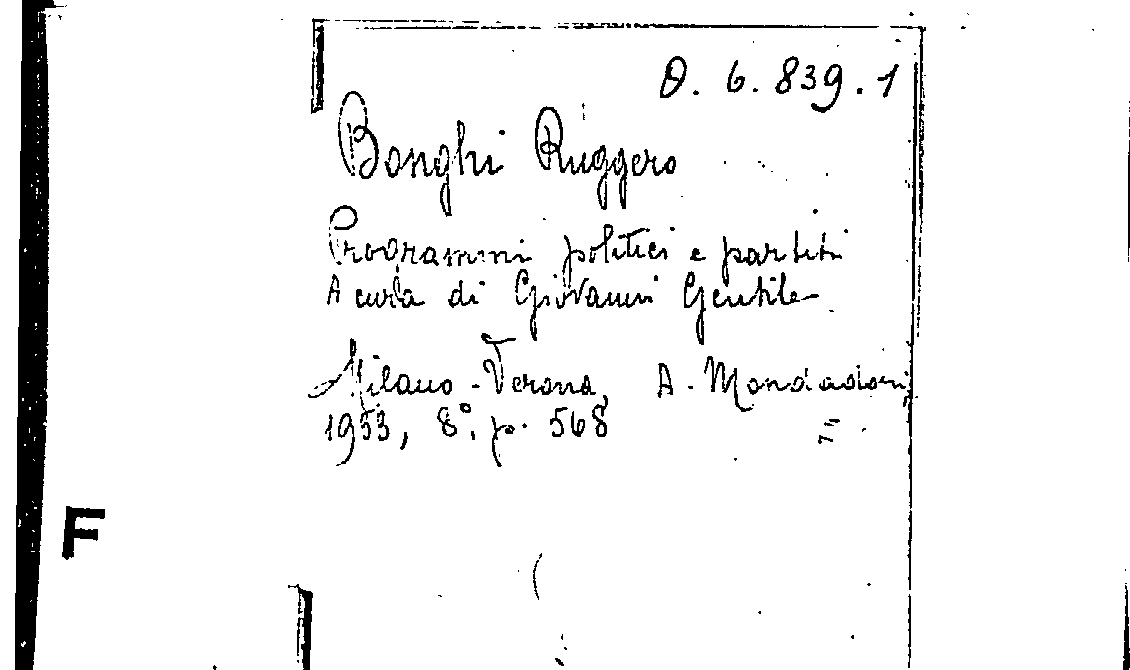 O. 6. 839. 1
Bonghi Ruggero
Programmi politici e partiti
A cura di Giovanni Gentile
Milano - Verona, A. Mondadori,
1933, 8°, p. 568
F